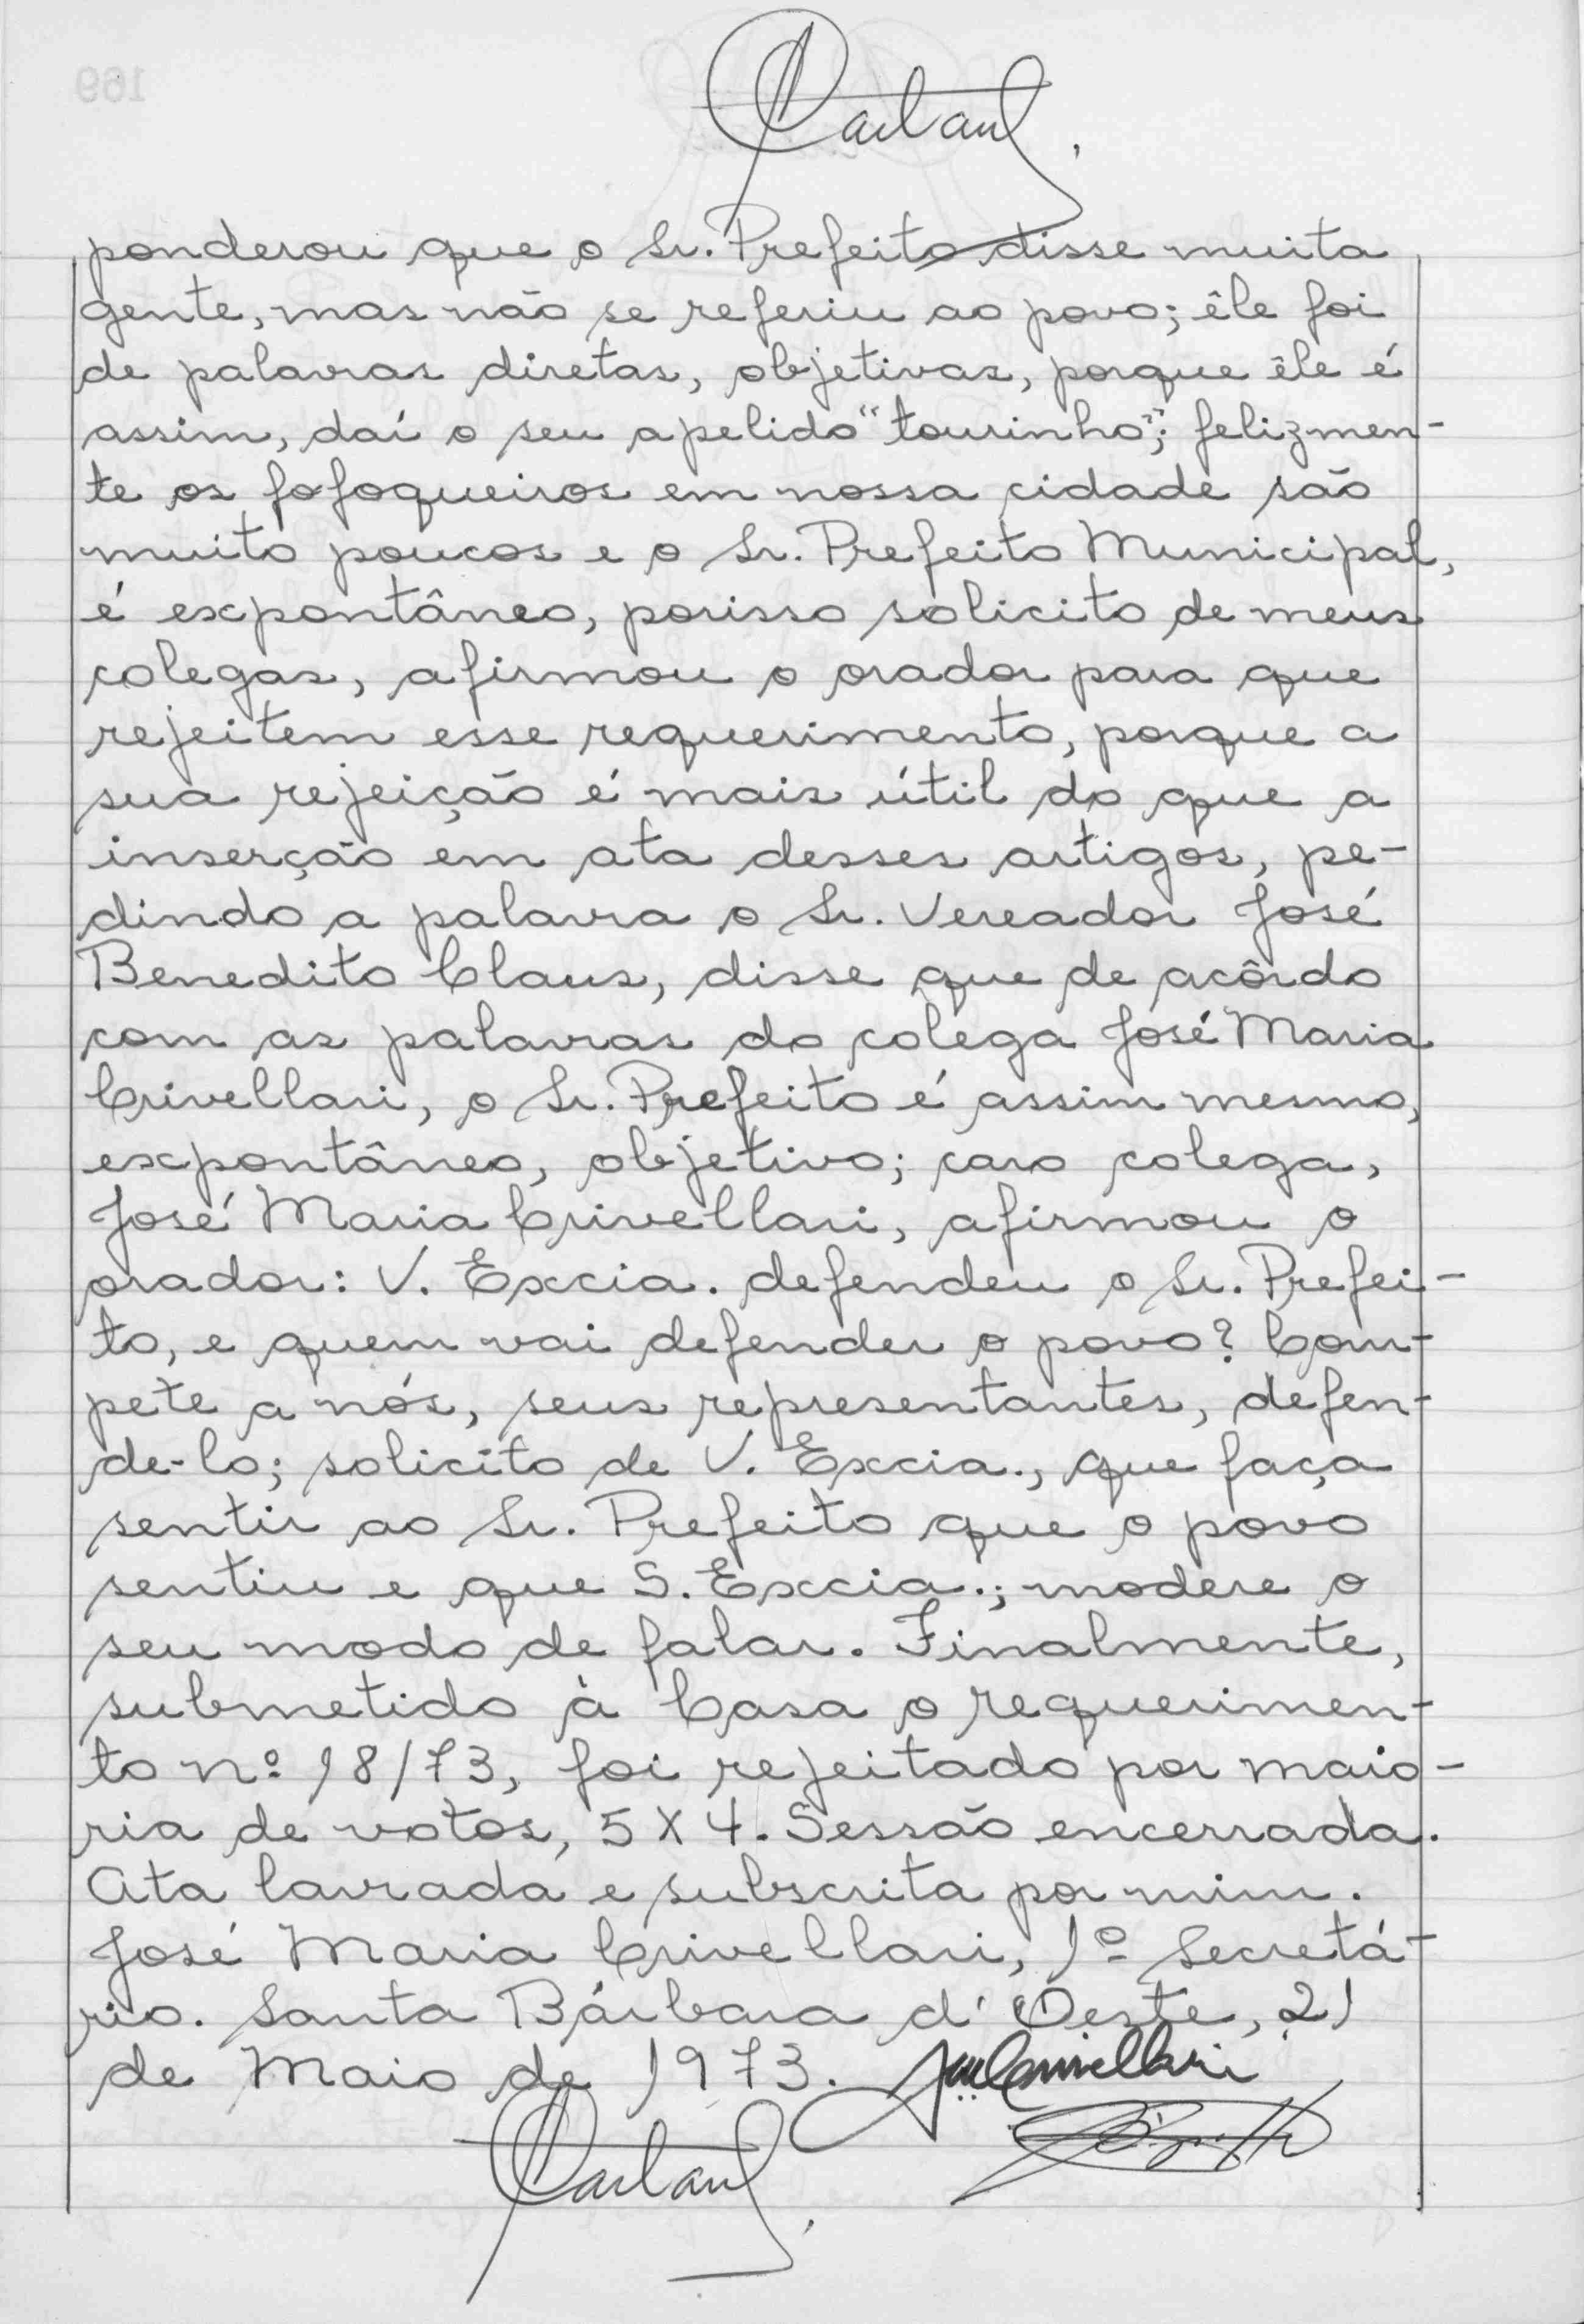 ponderou que o Sr. Prefeito disse muita
gente, mas não se referiu ao povo; êle foi
de palavras diretas, objetivas, porque êle é
assim, daí o seu apelido "tourinho"; felizmen-
te os fofoqueiros em nossa cidade são
muito poucos e o Sr. Prefeito Municipal,
é expontâneo, porisso solicito de meus
colegas, afirmou o orador para que
rejeitem esse requerimento, porque a
sua rejeição é mais útil do que a
inserção em ata desses artigos, pe-
dindo a palavra o Sr. Vereador José
Benedito Claus, disse que de acôrdo
com as palavras do colega José Maria
Crivellari, o Sr. Prefeito é assim mesmo,
expontâneo, objetivo; caro colega,
José Maria Crivellari, afirmou o
orador: V. Excia. defendeu o Sr. Prefei-
to, e quem vai defender o povo? Com-
pete a nós, seus representantes, defen-
de-lo; solicito de V. Excia., que faça
sentir ao Sr. Prefeito que o povo
sentiu e que S. Excia.; modere o
seu modo de falar. Finalmente,
submetido à Casa o requerimen-
to nº 18/73, foi rejeitado por maio-
ria de votos, 5 X 4. Sessão encerrada.
Ata lavrada e subscrita por mim.
José Maria Crivellari, 1º Secretá-
rio. Santa Bárbara d'Oeste, 21
de Maio de 1973.